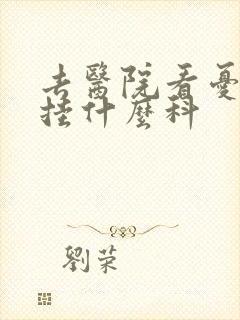 去醫院看憂
挂什麼科
劉荣